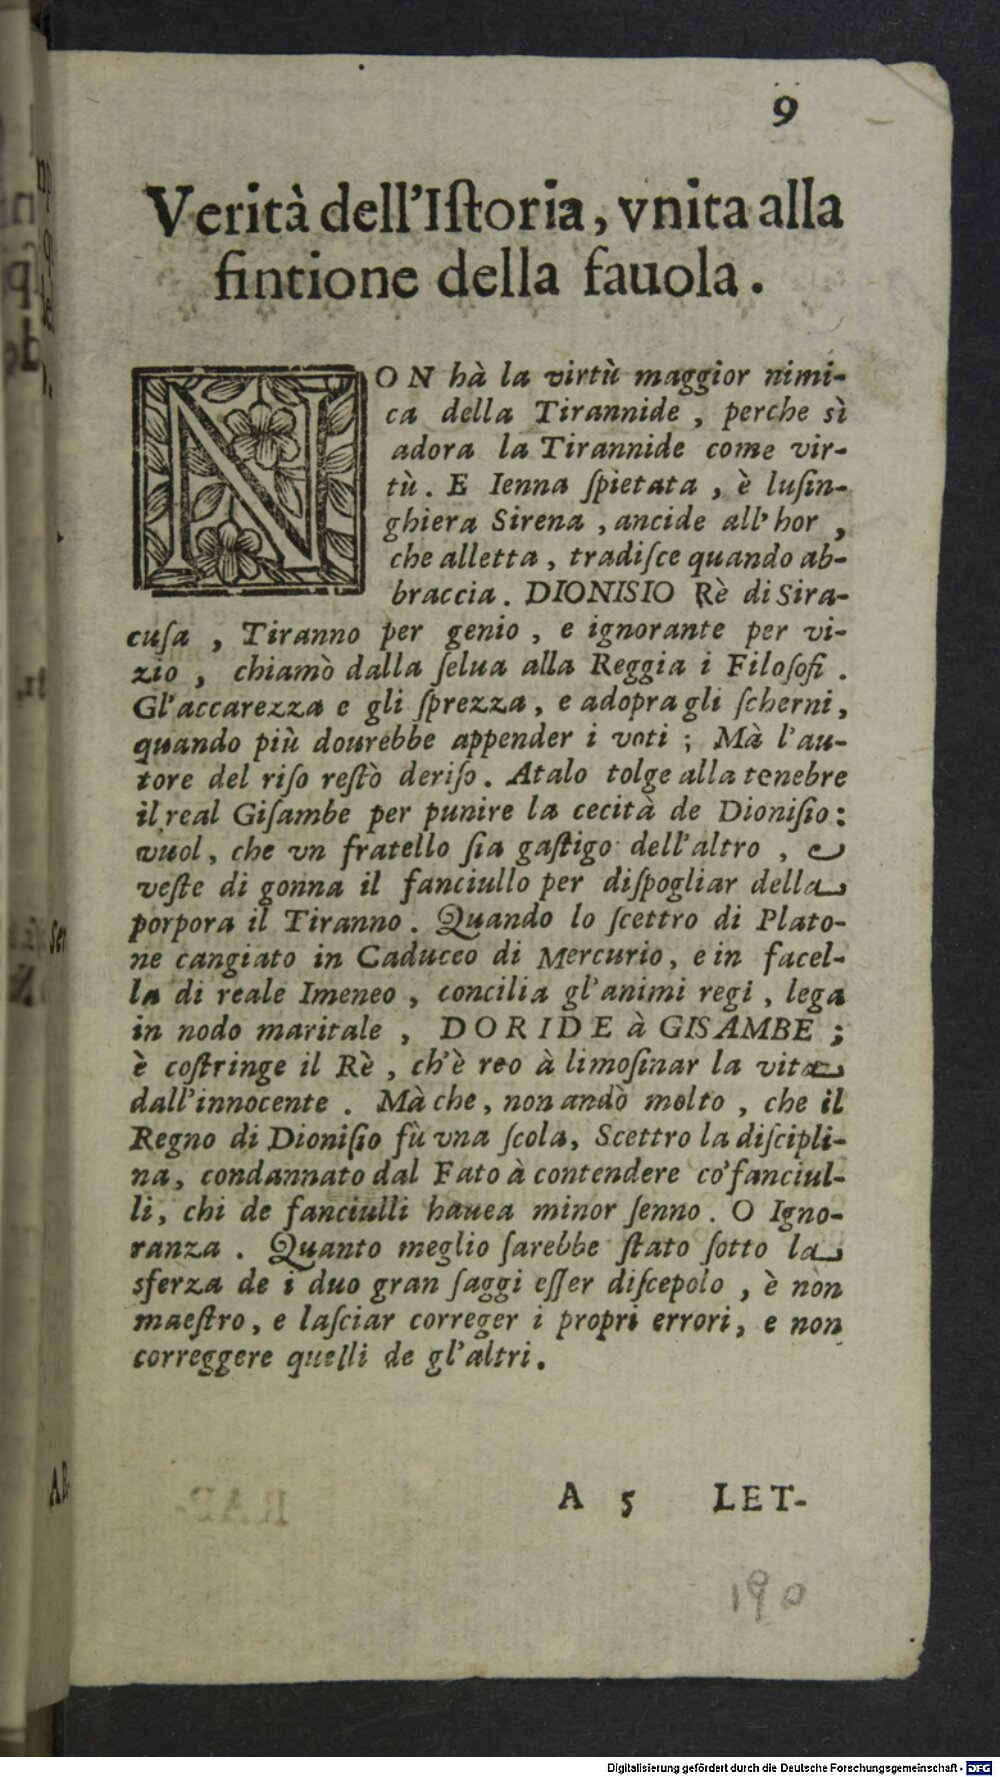 9
Verità dell'Iſtoria, vnita alla
fintione della fauola.
NON hà la virtù maggior nimi-
ca della Tirannide, perche sì
adora la Tirannide come vir-
tù. E Ienna ſpietata, è luſin-
ghiera Sirena, ancide all'hor,
che alletta, tradiſce quando ab-
braccia. DIONISIO Rè di Sira-
cuſa, Tiranno per genio, e ignorante per vi-
zio, chiamò dalla ſelua alla Reggia i Filoſofi.
Gl'accarezza e gli ſprezza, e adopra gli ſcherni,
quando più dourebbe appender i voti; Mà l'au-
tore del riſo reſtò deriſo. Atalo tolge alla tenebre
il real Giſambe per punire la cecità de Dioniſio:
vuol, che vn fratello ſia gaſtigo dell'altro, e
veſte di gonna il fanciullo per diſpogliar della
porpora il Tiranno. Quando lo ſcettro di Plato-
ne cangiato in Caduceo di Mercurio, e in facel-
la di reale Imeneo, concilia gl'animi regi, lega
in nodo maritale, DORIDE à GISAMBE;
è coſtringe il Rè, ch'è reo à limoſinar la vita
dall'innocente. Mà che, non andò molto, che il
Regno di Dioniſio fù vna ſcola, Scettro la diſcipli-
na, condannato dal Fato à contendere co'fanciul-
li, chi de fanciulli hauea minor ſenno. O Igno-
ranza. Quanto meglio ſarebbe ſtato ſotto la
sferza de i duo gran ſaggi eſſer diſcepolo, è non
maeſtro, e laſciar correger i propri errori, e non
correggere quelli de gl'altri.
A 5 LET-
190
Digitalisierung gefördert durch die Deutsche Forschungsgemeinschaft - DFG